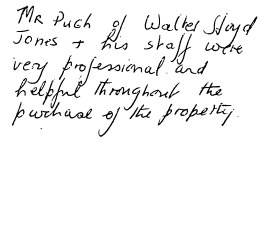 Mr Pugh of Walter Lloyd
Jones + his staff were
very professional and
helpful throughout the
purchase of the property.